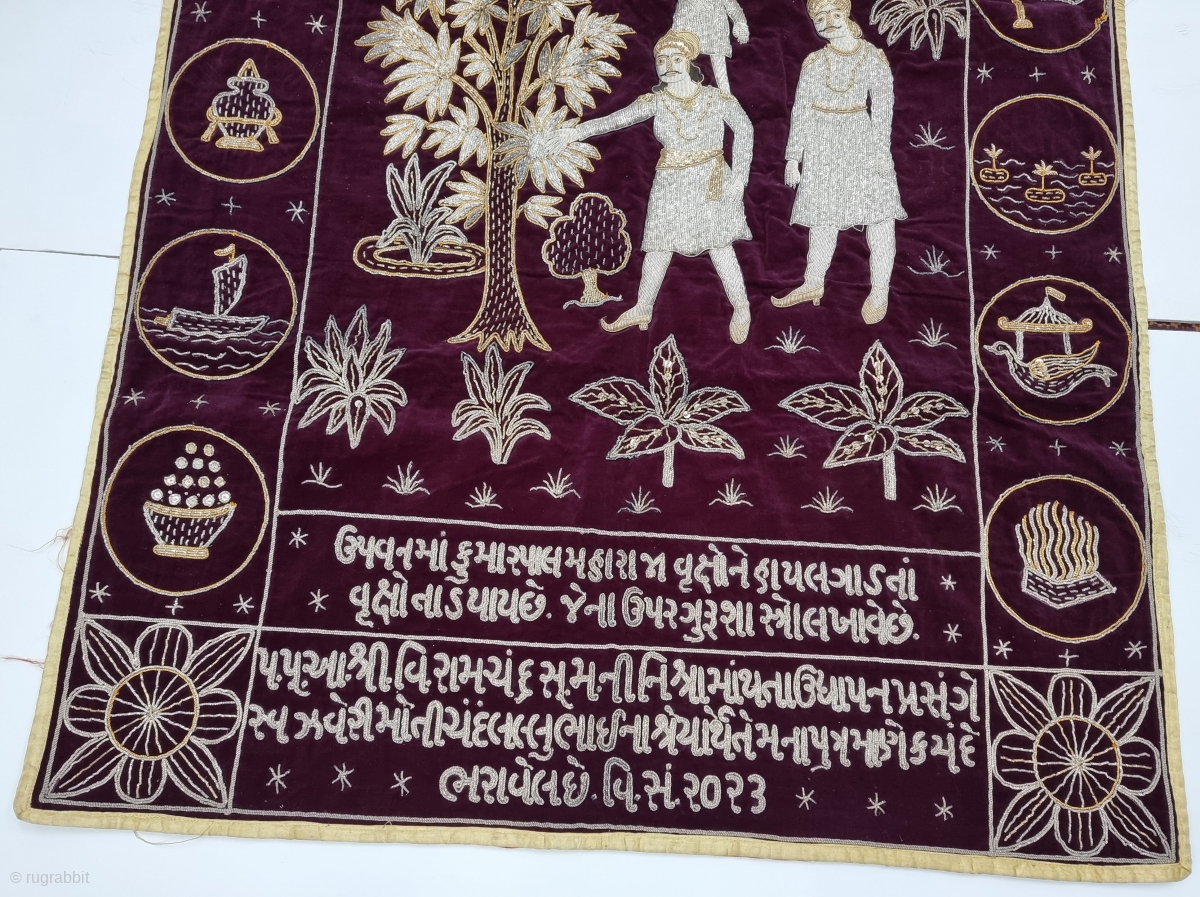 ઉપવનમાં કુમારપાલ મહારાજા વૃક્ષોને હાયલગાડતાં
વૃક્ષો તાડ યાયછે. જેના ઉપર ગુરૂશા સ્ત્રોલખાવેછે.
પ.પૂ.આ.શ્રી.વિ.રામચંદ્ર સૂ.મ.ની નિશ્રામાં થતા ઉદ્યાપન પ્રસંગે
સ્વ ઝવેરી મોતીચંદ લલ્લુભાઈના શ્રેયાર્થે તેમના પુત્ર માણેકચંદે
ભરાવેલ છે. વિ.સં.૨૦૨૩
© rugrabbit